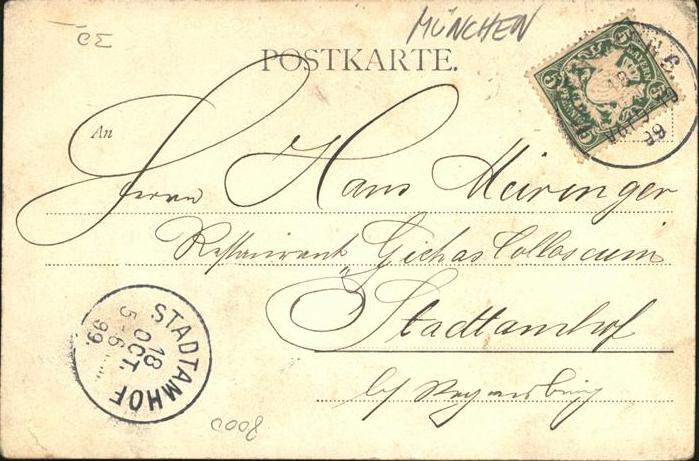 MÜNCHEN
POSTKARTE.
An
Herrn Hans Meiringer
Restaurant Gichas Colloseum
Stadtamhof
b/ Regensburg
STADTAMHOF
18
OCT.
5-6
99.
8000
5 BAYERN 5